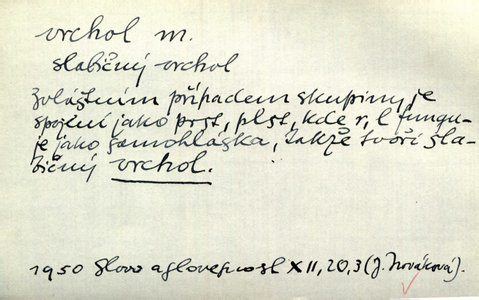 vrchol m.
slabičný vrchol
Zvláštním případem skupiny je
spojení jako prst, plst, kde r, l fungu-
je jako samohláska, takže tvoří sla-
bičný vrchol.
1950 Slovo a slovesnost XII, 20,3 (J. Nováková).